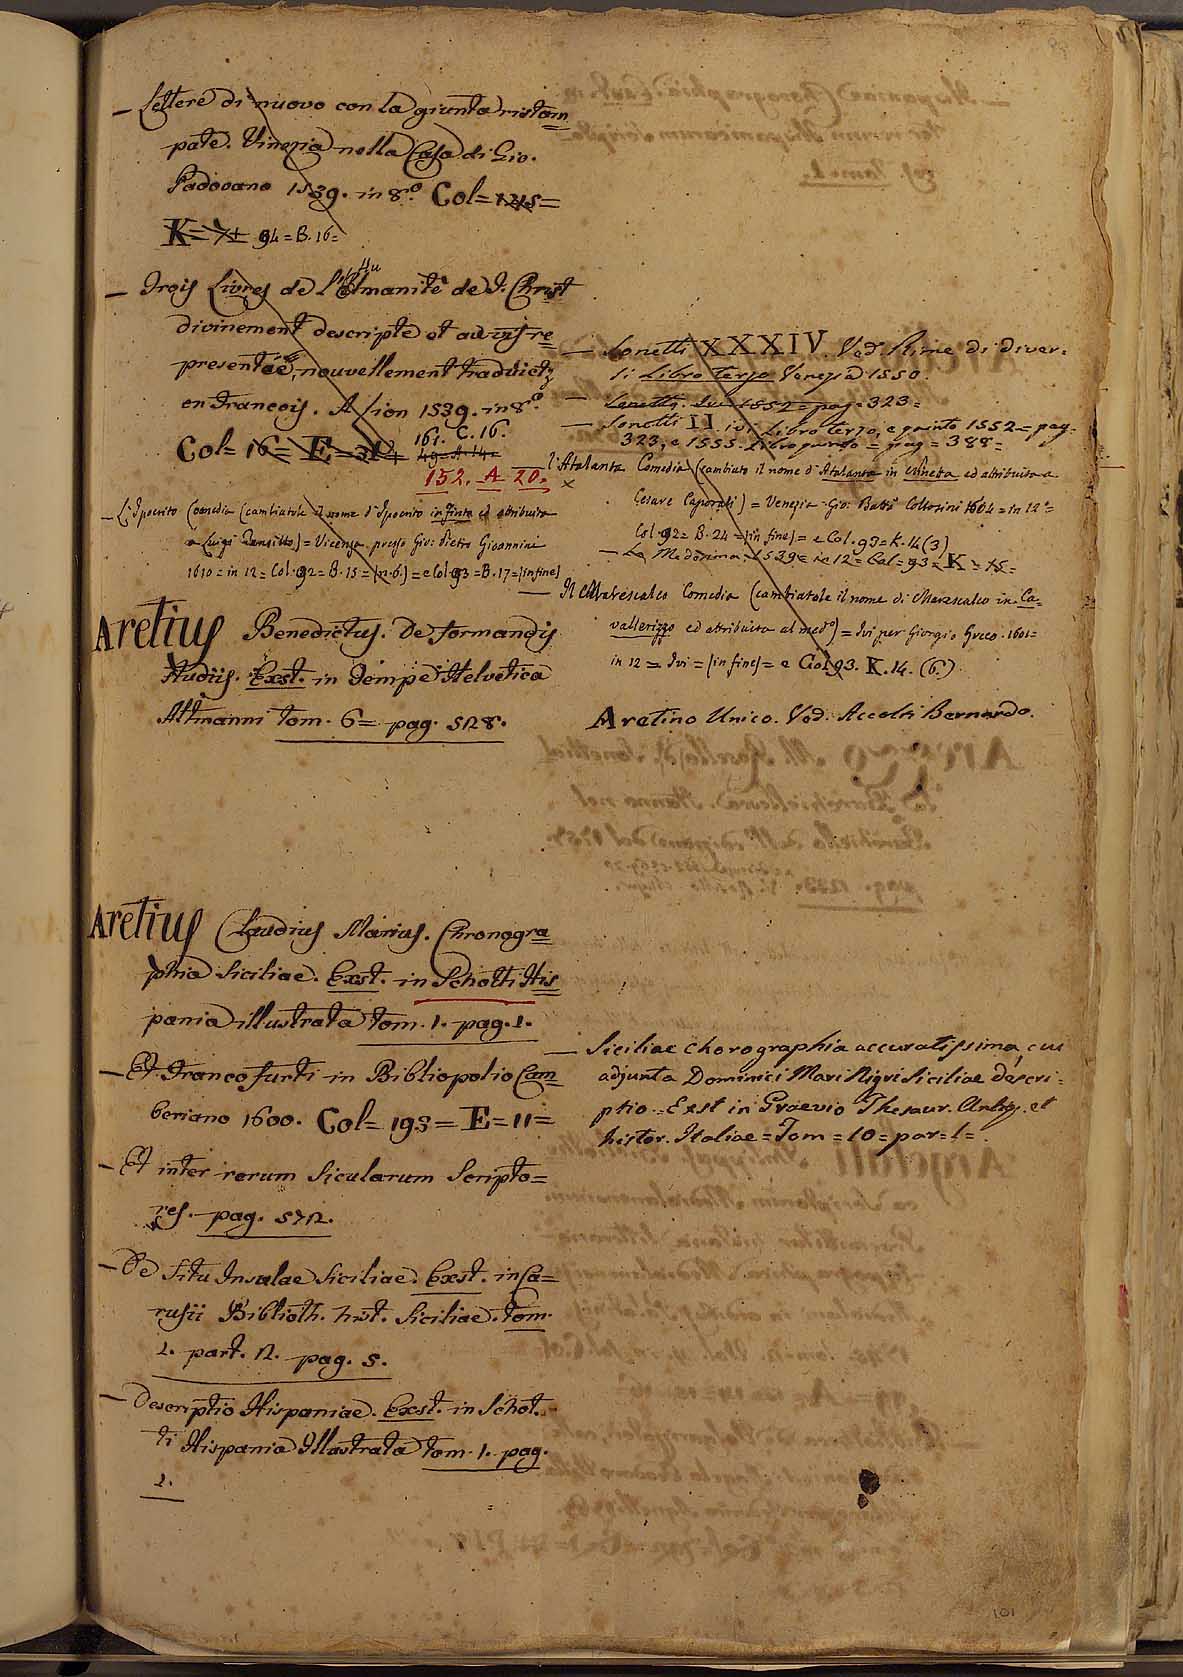 — Lettere di nuovo con la giunta ristam
pate. Vinezia nella Casa di Gio.
Padovano 1539. in 8.º Col= 145=
K= 94=B.16=
— Trois Livres de l'Humanité de J. Christ
divinement descripte et au vif re
presentée, nouvellement traduictz
en Francois. A Lion 1539. in 8.º
Col= 16= E= 161. C.16.
49=A.14=
152. A 20.
— L'Ipocrito Comedia (cambiatole il nome d'Ipocrito in finto ed attribuita
a Luigi Tansillo)= Vicenza presso Gio: Pietro Gioannini
1610= in 12= Col.92= B.15= (n.6.)= e Col.93=B.17=(in fine)
Aretius Benedictus. De formandis
studiis. Exst. in Tempe Helvetica
Altmanni tom. 6= pag. 528.
Aretius Claudius Marius. Chronogra
phia Siciliae. Exst. in Schotti His
pania illustrata tom. 1. pag. 1.
— Et Francofurti in Bibliopolio Cam
beriano 1600. Col= 193= E=11=
— Et inter rerum Sicularum Scripto=
res. pag. 572.
— De Situ Insulae Siciliae. Exst. in Ca=
rusii Biblioth. hist. Siciliae. tom.
1. part. 2. pag. 5.
— Descriptio Hispaniae. Exst. in Schot.
ti Hispania Illustrata tom. 1. pag.
2.
— Sonetti XXXIV. Ved. Rime di diver:
si Libro terzo Venezia 1550.
— Sonetti. Ivi 1552= pag= 323=
— Sonetti II. ivi Libro terzo, e quinto 1552= pag=
323, e 1555. Libro quinto = pag= 388=
— l'Atalanta Comedia (cambiato il nome d'Atalanta in Ninetta ed attribuita a
Cesare Caporali)= Venezia Gio: Batta Collosini 1604= in 12º=
Col.92= B.24= (in fine)= e Col.93= K.14(3)
— La Medesima. 1539= in 12= Col=93= K=15=
— Il Marescalco Comedia (cambiatole il nome di Marescalco in Ca=
vallerizzo ed attribuita al medº)= Ivi per Giorgio Greco. 1601=
in 12= Ivi= (in fine)= e Col.93. K.14. (6.)
Aretino Unico. Ved. Accolti Bernardo.
— Siciliae Chorographia accuratissima, cui
adjunta Dominici Mari Nigri Siciliae descri=
ptio= Exst in Graevio Thesaur. Antiq. et
histor. Italiae= Tom= 10= par= 1=
101